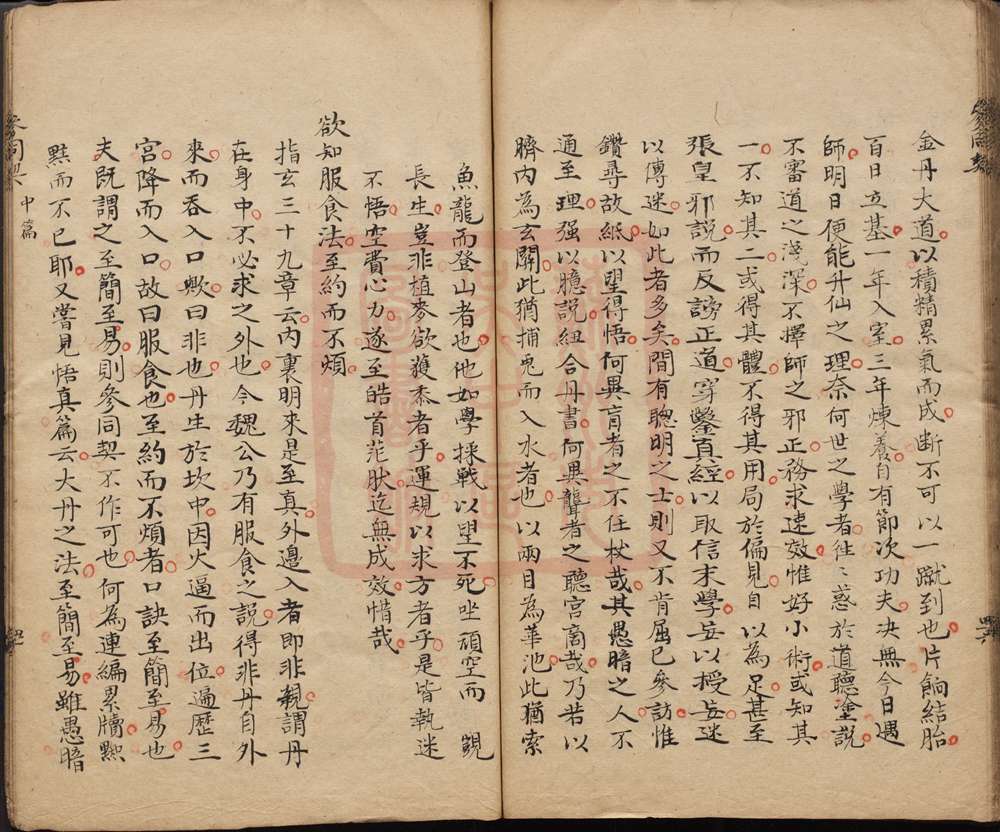 金丹大道以積精累氣而成斷不可以一蹴到也片餉結胎
百日立基一年入室三年煉養自有節次功夫决無今日遇
師明日便能升仙之理奈何世之學者徃〻惑於道聽塗説
不審道之淺深不擇師之邪正務求速效惟好小術或知其
一不知其二或得其體不得其用局於偏見自以為足甚至
張皇邪説而反謗正道穿鑿真經以取信末學妄以授妄迷
以傳迷如此者多矣間有聰明之士則又不肯屈己參訪惟
鑽尋故紙以望得悟何異盲者之不任杖哉其愚暗之人不
通至理强以臆説紐合丹書何異聾者之聽宫商哉乃若以
臍内為玄關此猶捕兎而入水者也以兩目為華池此猶索
魚龍而登山者也他如學採戰以望不死坐頑空而覬
長生豈非植麥欲獲黍者乎運規以求方者乎是皆執迷
不悟空費心力遂至皓首茫肰迄無成效惜哉
欲知服食法至約而不煩
指玄三十九章云内裏明來是至真外邊入者即非親謂丹
在身中不必求之外也今魏公乃有服食之説得非丹自外
來而吞入口歟曰非也丹生於坎中因火逼而出位遍歷三
宫降而入口故曰服食也至約而不煩者口訣至簡至易也
夫既謂之至簡至易則參同契不作可也何為連編累牘㸃
㸃而不已耶又嘗見悟真篇云大丹之法至簡至易雖愚暗
參同契 中篇